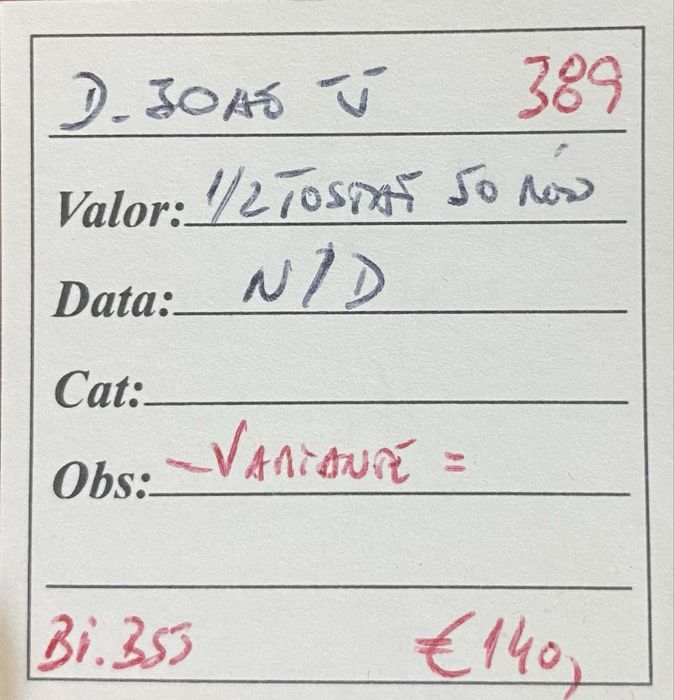 D. JOÃO V 389
Valor: 1/2 TOSTÃO 50
Data: N/D
Cat:
Obs: - VARIANTE =
Bi. 353 € 140,